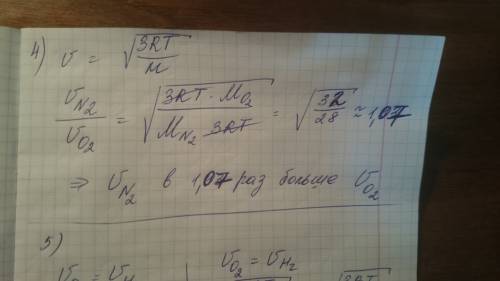 4) v = √(3RT/M)
v_N₂/v_O₂ = √(3RT · M_O₂ / M_N₂ 3RT) = √(32/28) ≈ 1,07
⇒ v_N₂ в 1,07 раз больше v_O₂
5)
v_O₂ = v_H₂